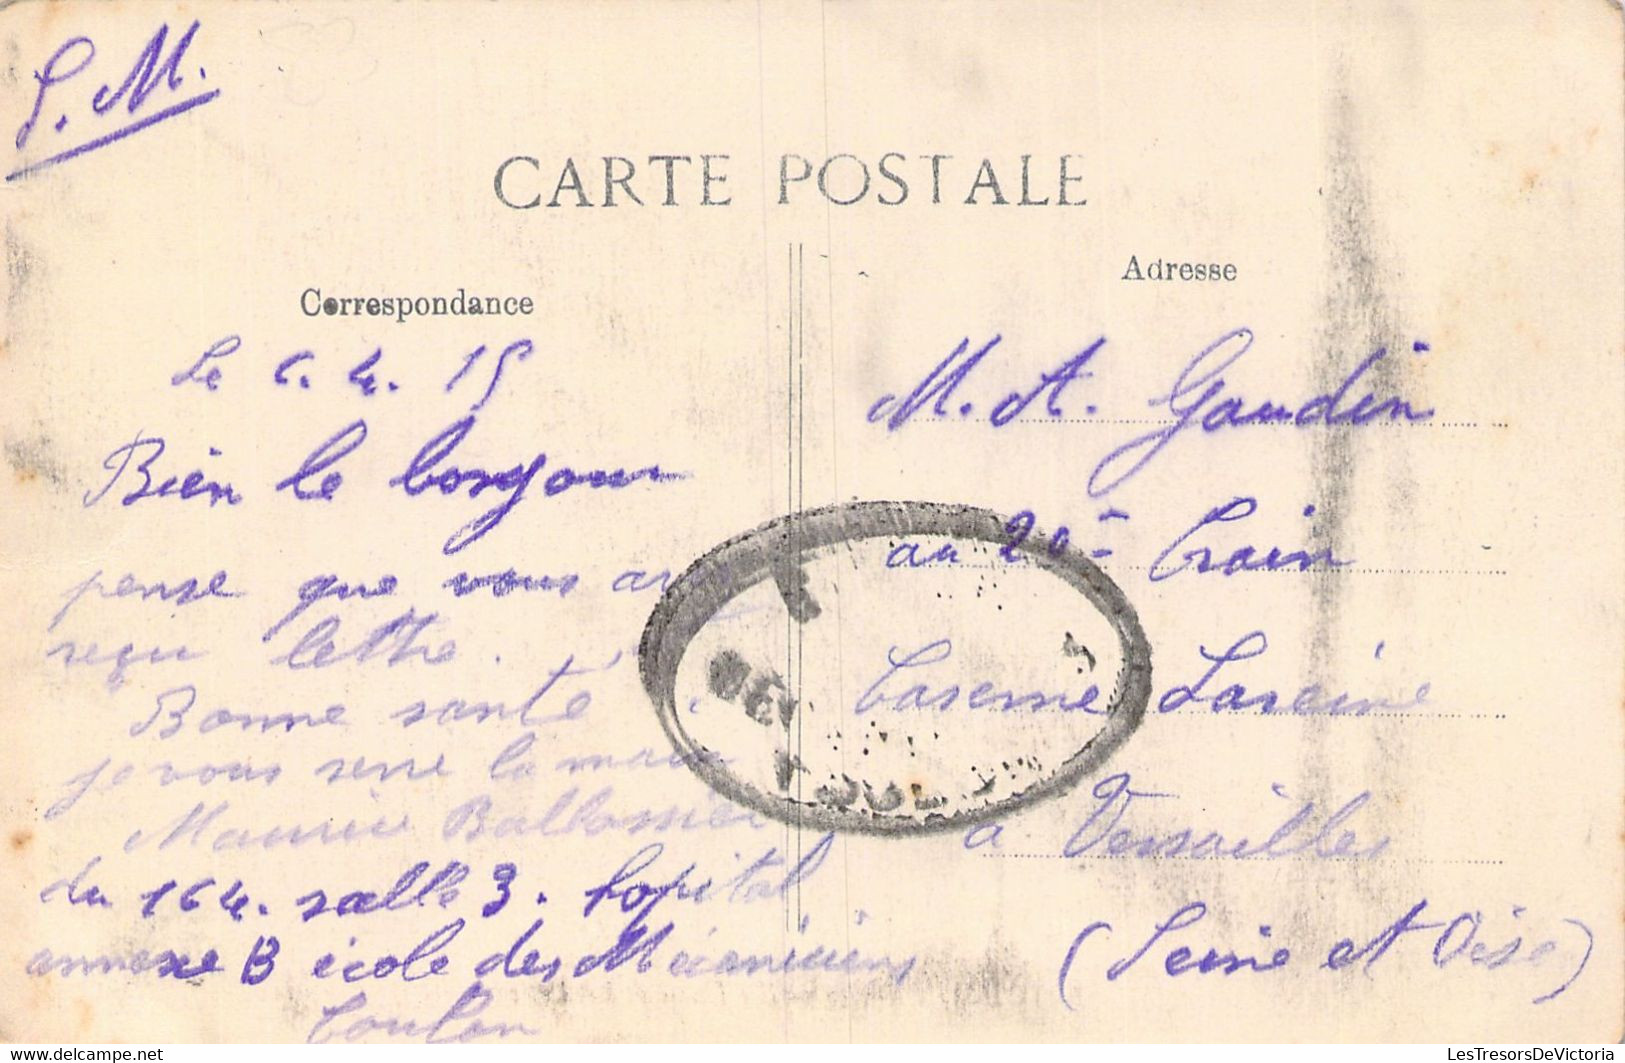 S. M.
CARTE POSTALE
Correspondance
Le 6. 4. 15
Bien le bonjour
pense que vous avez
reçu lettre.
Bonne santé
je vous serre la main
Maurice
du 164. salle 3. hopital
annexe B école des Mécaniciens
Toulon
Adresse
M. A. Gaudin
au 20e Train
Caserne
à Versailles
(Seine et Oise)
LesTresorsDeVictoria
https://www.delcampe.net